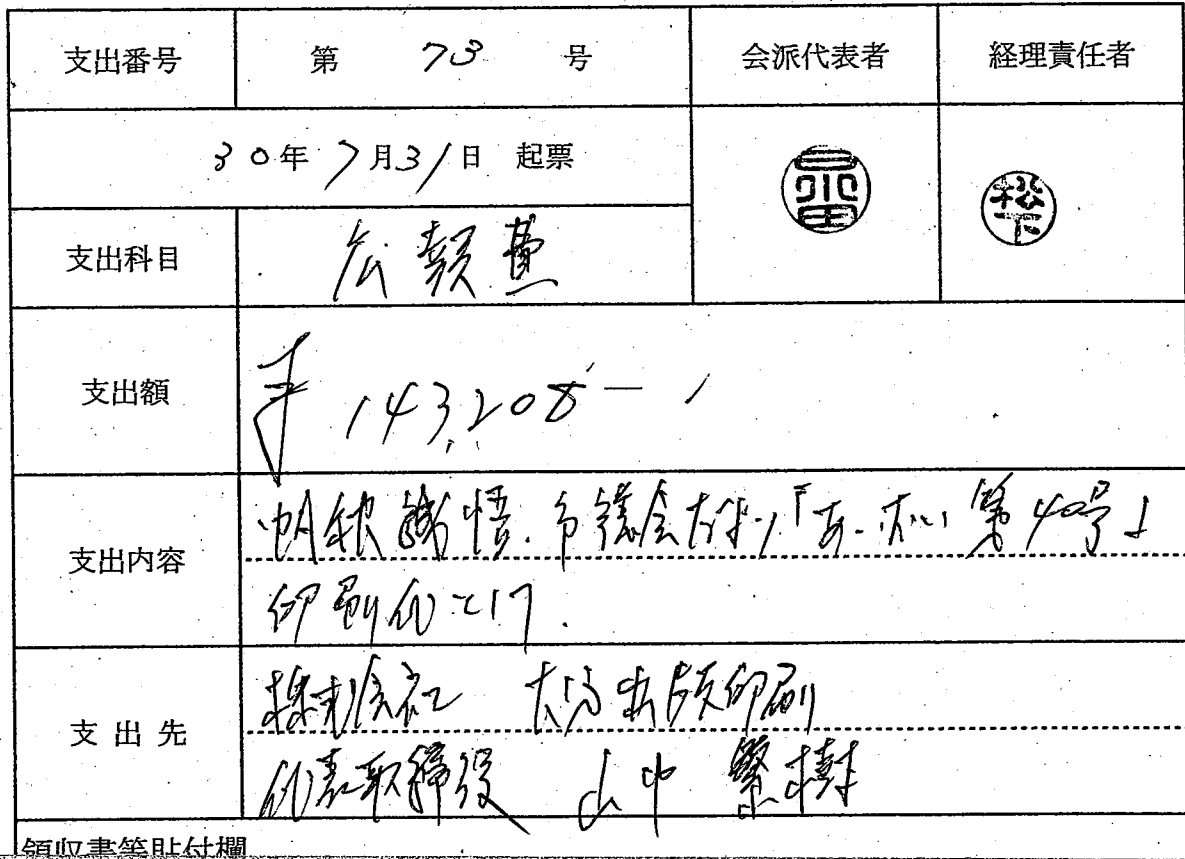 支出番号 第 73 号 会派代表者 経理責任者
30年 7月31日 起票
松下
支出科目 広報費
支出額 ¥ 143,208 —
支出内容 市議会だより「 第40号」
印刷代として.
支出先 株式会社 出版印刷
代表取締役 山中 繁樹
領収書等貼付欄